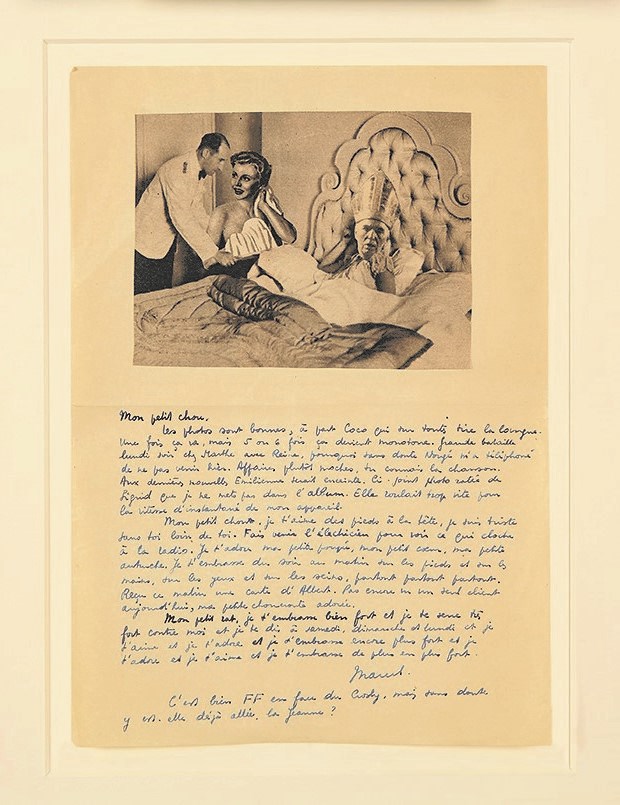 Mon petit chou,
Les photos sont bonnes, à part Coco qui sur toutes tire la langue.
Une fois ça va, mais 5 ou 6 fois ça devient monotone. Grande bataille
lundi soir chez Marthe avec Reine, pourquoi sans doute Nougé m'a téléphoné
de ne pas venir hier. Affaires plutôt moches, tu connais la chanson.
Aux dernières nouvelles Emilienne serait enceinte. Ci-joint photo ratée de
Sigrid que je ne mets pas dans l'album. Elle roulait trop vite pour
la vitesse d'instantané de mon appareil.
Mon petit chonto, je t'aime des pieds à la tête, je suis triste
sans toi loin de toi. Fais venir l'électricien pour voir ce qui cloche
à la radio. Je t'adore ma petite fougère, mon petit cœur, ma petite
autruche. Je t'embrasse du soir au matin sur les pieds et sur les
mains, sur les yeux et sur les seins, partout partout partout.
Reçu ce matin une carte d'Albert. Pas encore vu un seul client
aujourd'hui, ma petite adorée.
Mon petit rat, je t'embrasse bien fort et je te serre très
fort contre moi et je te dis à samedi, dimanche et lundi et je
t'aime et je t'adore et je t'embrasse encore plus fort et je
t'adore et je t'aime et je t'embrasse de plus en plus fort.
Marcel.
C'est bien FF en face du Crosly, mais sans doute
y est-elle déjà allée, la Jeanne ?